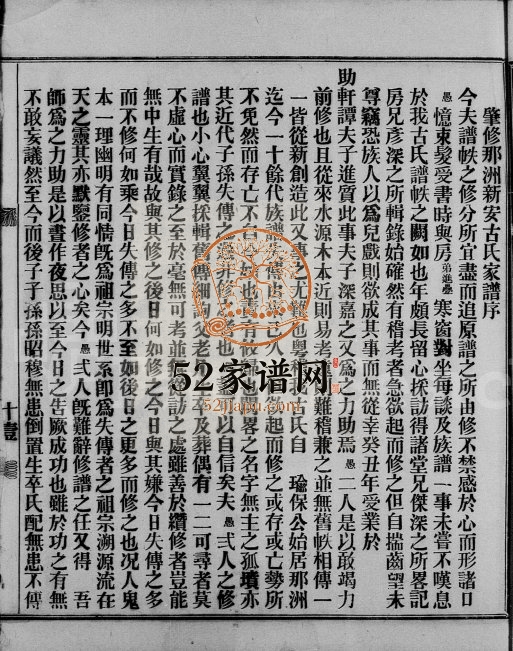 肇修那洲新安古氏家譜序
今夫譜帙之修分所宜盡而追原譜之所由修不禁感於心而形諸口
愚憶束髮愛書時與房弟進壘寒窗對坐每談及族譜一事未嘗不嘆息
於我古氏譜帙之闕如也年頗長留心採訪得諸堂兄傑深之所畧記
房兄彥深之所輯錄始確然有稽考者急欲起而修之但自揣齒望未
尊竊恐族人以為兒戲則欲成其事而無從幸癸丑年受業於
助軒譚夫子進質此事夫子深嘉之又為之力助焉愚二人是以敢竭力
前修也且從來水源木本近則易考 難稽兼之並無舊帙相傳一
一皆從新創造此又事之尤難也粵稽 古氏自 瑜保公始居那洲
迄今一十餘代族譜失傳 故已久 欲起而修之或存或亡勢所
不免然而存亡不 畧之名字無主之狐墳亦
其近代子孫失傳之 非修之 以自信矣夫愚弍人之修
譜也小心翼翼採輯舊傳細詢父老 生卒及葬偶有一二可尋者莫
不虛心而實錄之至於毫無可考並 訪之處雖善於纘修者豈能
無中生有哉故與其修之後日何如修之今日與其嫌今日失傳之多
而不修何如乘今日失傳之多不至如後日之更多而修之也况人鬼
本一理幽明有同情旣為祖宗明世系卽為失傳者之祖宗溯源流在
天之靈其亦默鑒修者之心矣今愚弍人旣難辭修譜之任又得 吾
師為之力助是以晝作夜思以至今日之告厥成功也雖於功之有無
不敢妄議然至今而後子子孫孫昭穆無患倒置生卒氏配無患不傳
十壹
52家谱网
52jiapu.com